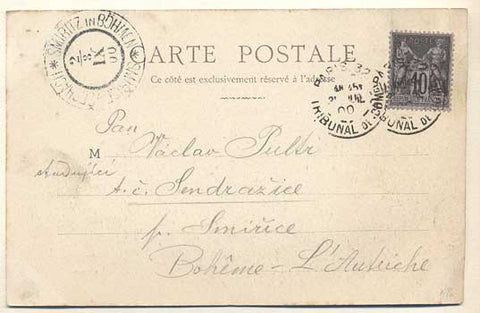 SMIRITZ in BÖHMEN
2/IX
00
CARTE POSTALE
Ce côté est exclusivement réservé à l'adresse
PARIS 32
00
TRIBUNAL DE
10
Pan
M Václav
studující
t.č. Sendražice
p. Smiřice
Bohême - L'Autriche